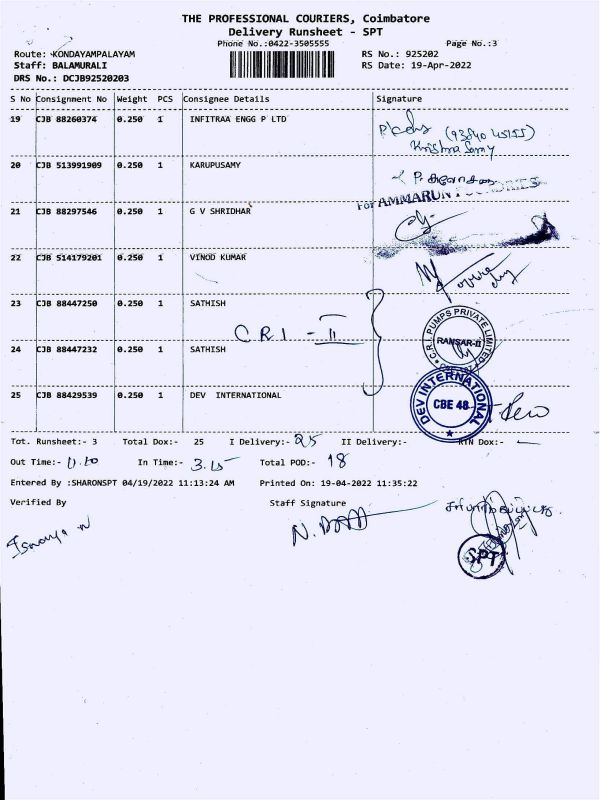 THE PROFESSIONAL COURIERS, Coimbatore
Delivery Runsheet - SPT
Phone No.:0422-3505555 Page No.:3
Route: KONDAYAMPALAYAM RS No.: 925202
Staff: BALAMURALI RS Date: 19-Apr-2022
DRS No.: DCJB92520203
S No Consignment No Weight PCS Consignee Details Signature
19 CJB 88260374 0.250 1 INFITRAA ENGG P LTD
Krishna Samy
20 CJB 513991909 0.250 1 KARUPUSAMY
For AMMARUN FOUNDRIES
21 CJB 88297546 0.250 1 G V SHRIDHAR
22 CJB 514179201 0.250 1 VINOD KUMAR
23 CJB 88447250 0.250 1 SATHISH
C.R.I - II
C.R.I. PUMPS PRIVATE LIMITED
RANSAR-II
24 CJB 88447232 0.250 1 SATHISH
25 CJB 88429539 0.250 1 DEV INTERNATIONAL
DEV INTERNATIONAL
CBE 48
Tot. Runsheet:- 3 Total Dox:- 25 I Delivery:- 25 II Delivery:- RTN Dox:-
Out Time:- 11.20 In Time:- 3.15 Total POD:- 18
Entered By :SHARONSPT 04/19/2022 11:13:24 AM Printed On: 19-04-2022 11:35:22
Verified By Staff Signature
SPT